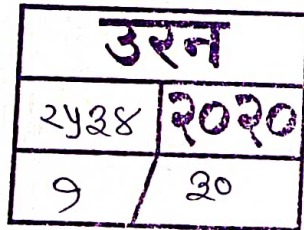 उरन
२५३४ २०२०
१ / ३०